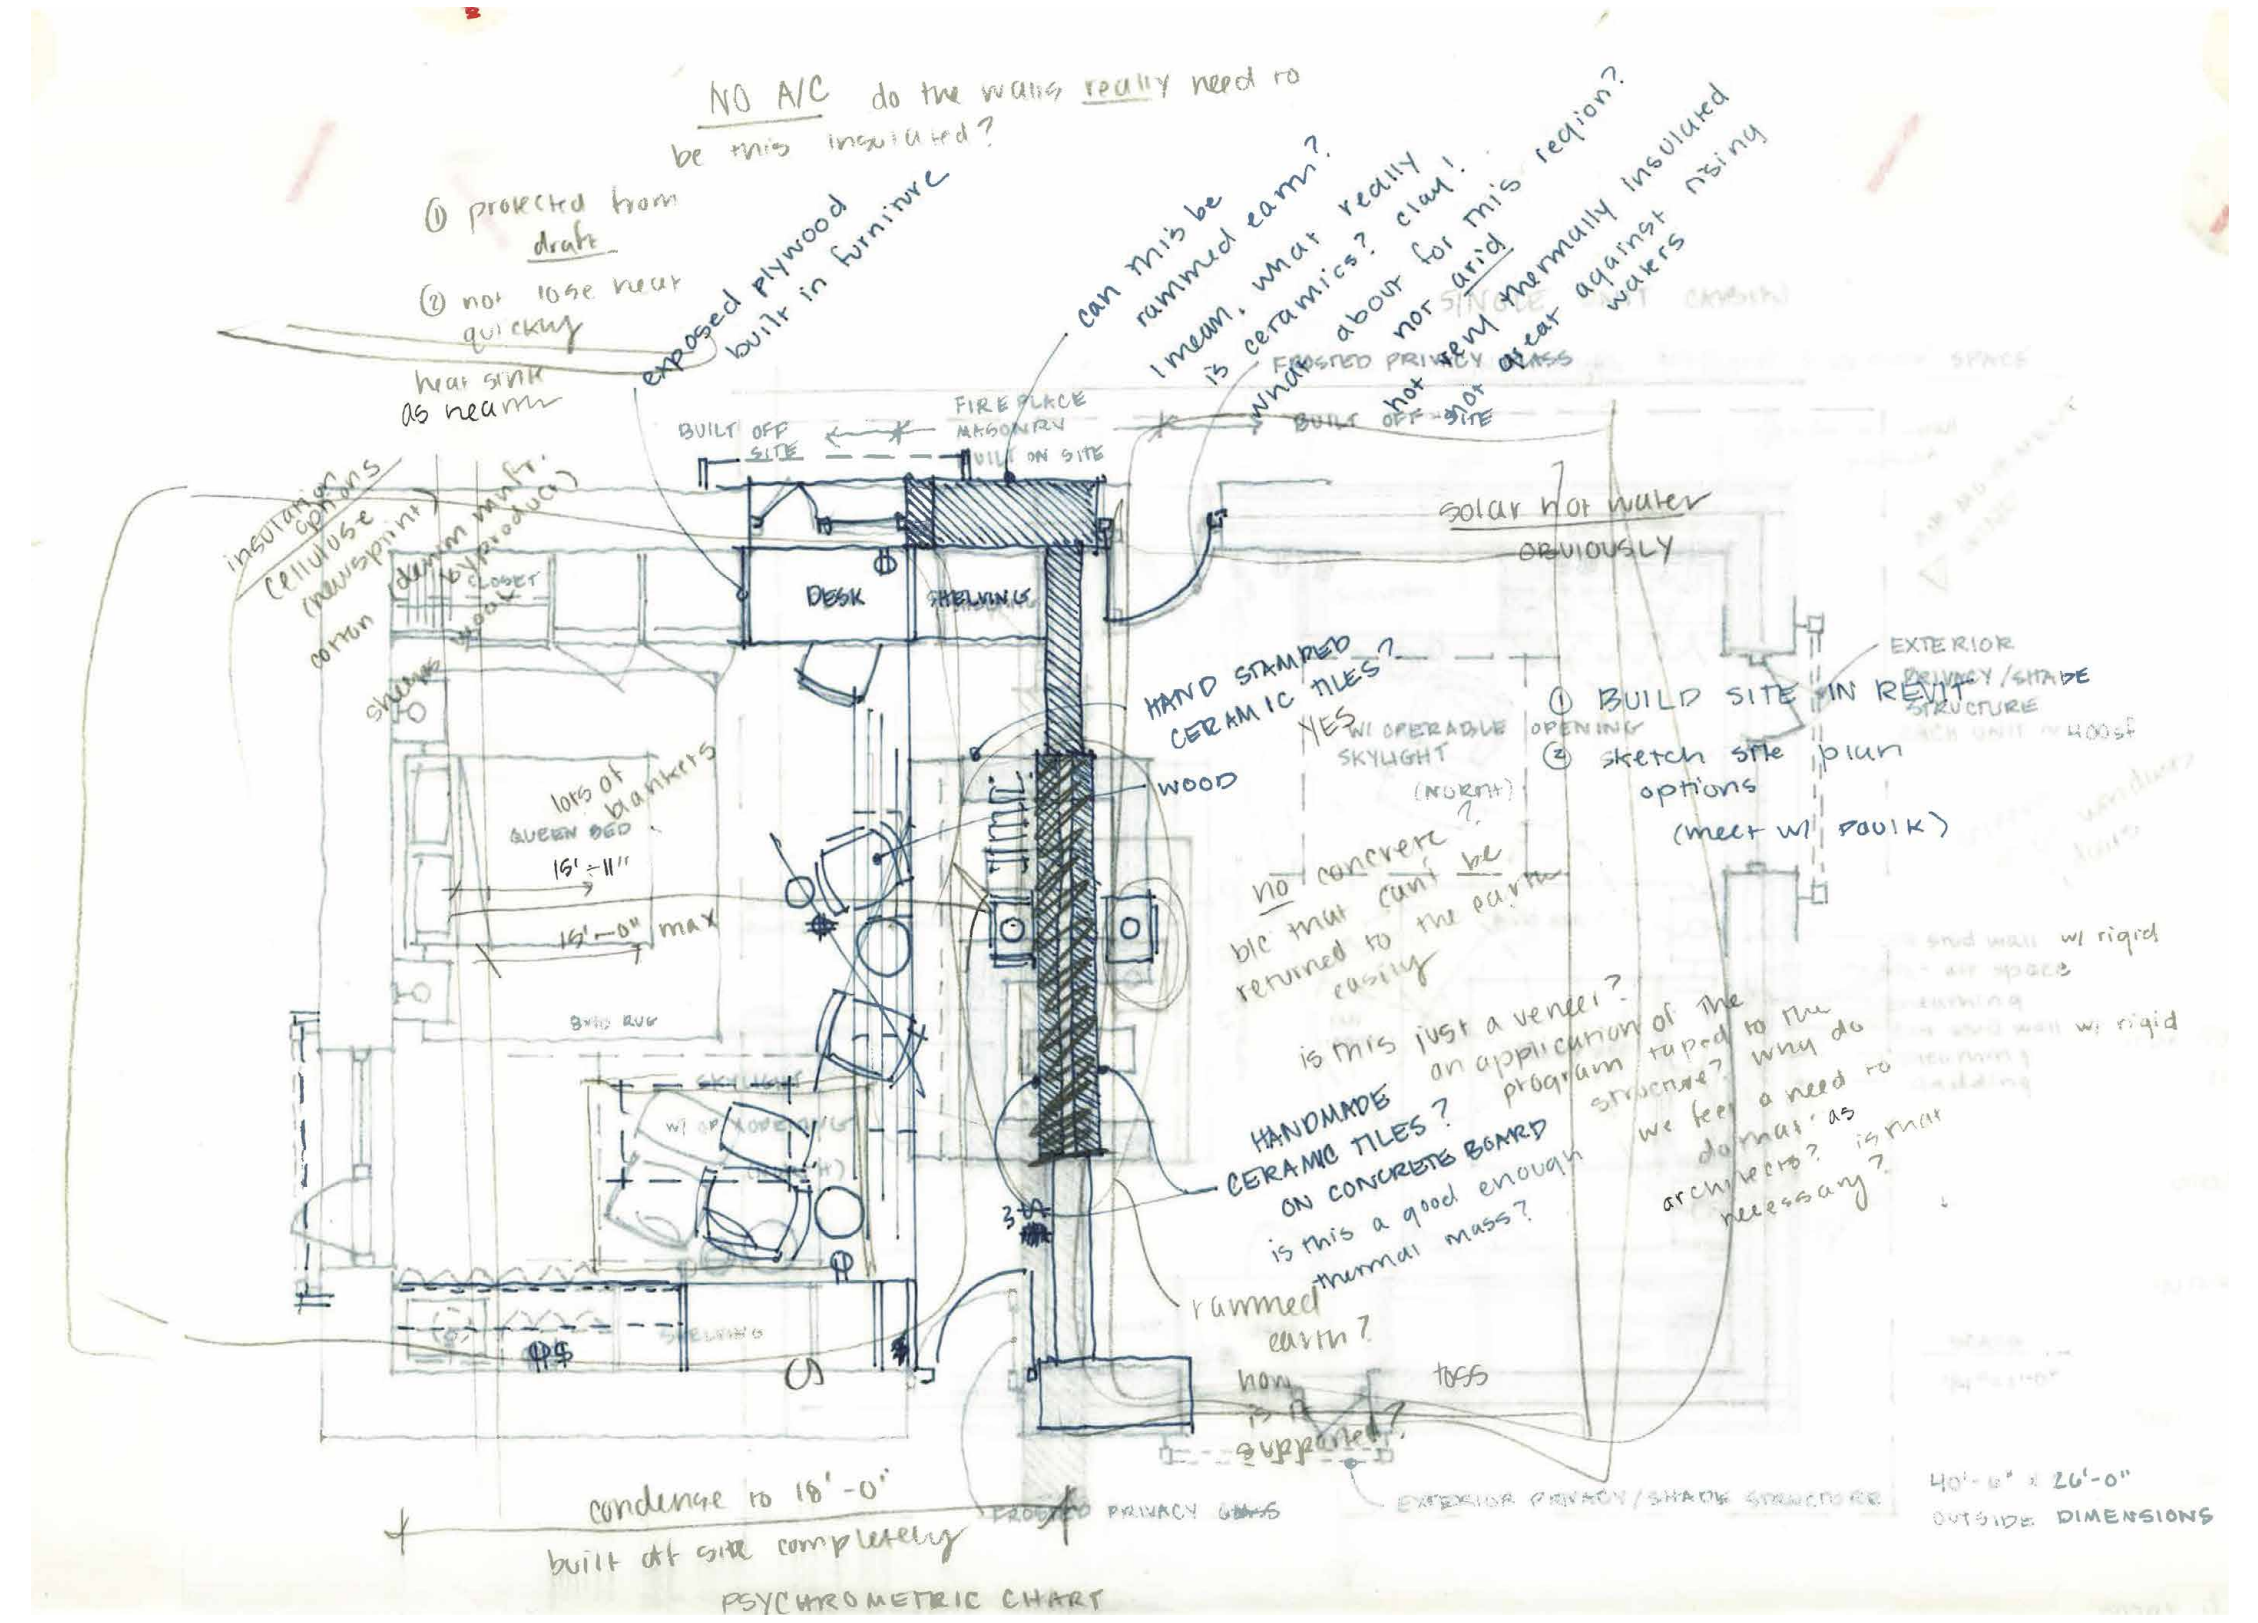 NO A/C do the walls really need to
be this insulated?
① protected from
draft
② not lose heat
quickly
heat sink
as hearth
exposed plywood
built in furniture
can this be
rammed earth?
I mean, what really
is ceramics? clay!
what about for this region?
not arid
not very thermally insulated
not great against rising
waters
SINGLE UNIT CABIN
FROSTED PRIVACY GLASS
SPACE
BUILT OFF
SITE
FIREPLACE
MASONRY
BUILT ON SITE
BUILT OFF-SITE
insulation
options
cellulose
(newsprint)
cotton (denim mnfr.
byproduct)
sheeps wool
CLOSET
DESK
SHELVING
solar hot water
OBVIOUSLY
HAND STAMPED
CERAMIC TILES?
YES
WOOD
W/ OPERABLE OPENING
SKYLIGHT
(NORTH)
EXTERIOR
PRIVACY/SHADE
STRUCTURE
EACH UNIT ~400sf
① BUILD SITE IN REVIT
② sketch site plan
options
(meet w/ PaulK)
lots of
blankets
QUEEN BED
15'-11"
15'-0" max
8x10 RUG
?
no concrete
b/c that can't be
returned to the earth
easily
is this just a veneer?
an application of the
program taped to the
structure? why do
we feel a need to
do that as
architects? is that
necessary?
stud wall w/ rigid
air space
stud wall w/ rigid
SKYLIGHT
HANDMADE
CERAMIC TILES?
ON CONCRETE BOARD
is this a good enough
thermal mass?
3
rammed
earth?
how
is it
supported?
toss
SHELVING
condense to 18'-0"
built off site completely
FROSTED PRIVACY GLASS
EXTERIOR PRIVACY/SHADE STRUCTURE
40'-6" x 26'-0"
OUTSIDE DIMENSIONS
PSYCHROMETRIC CHART